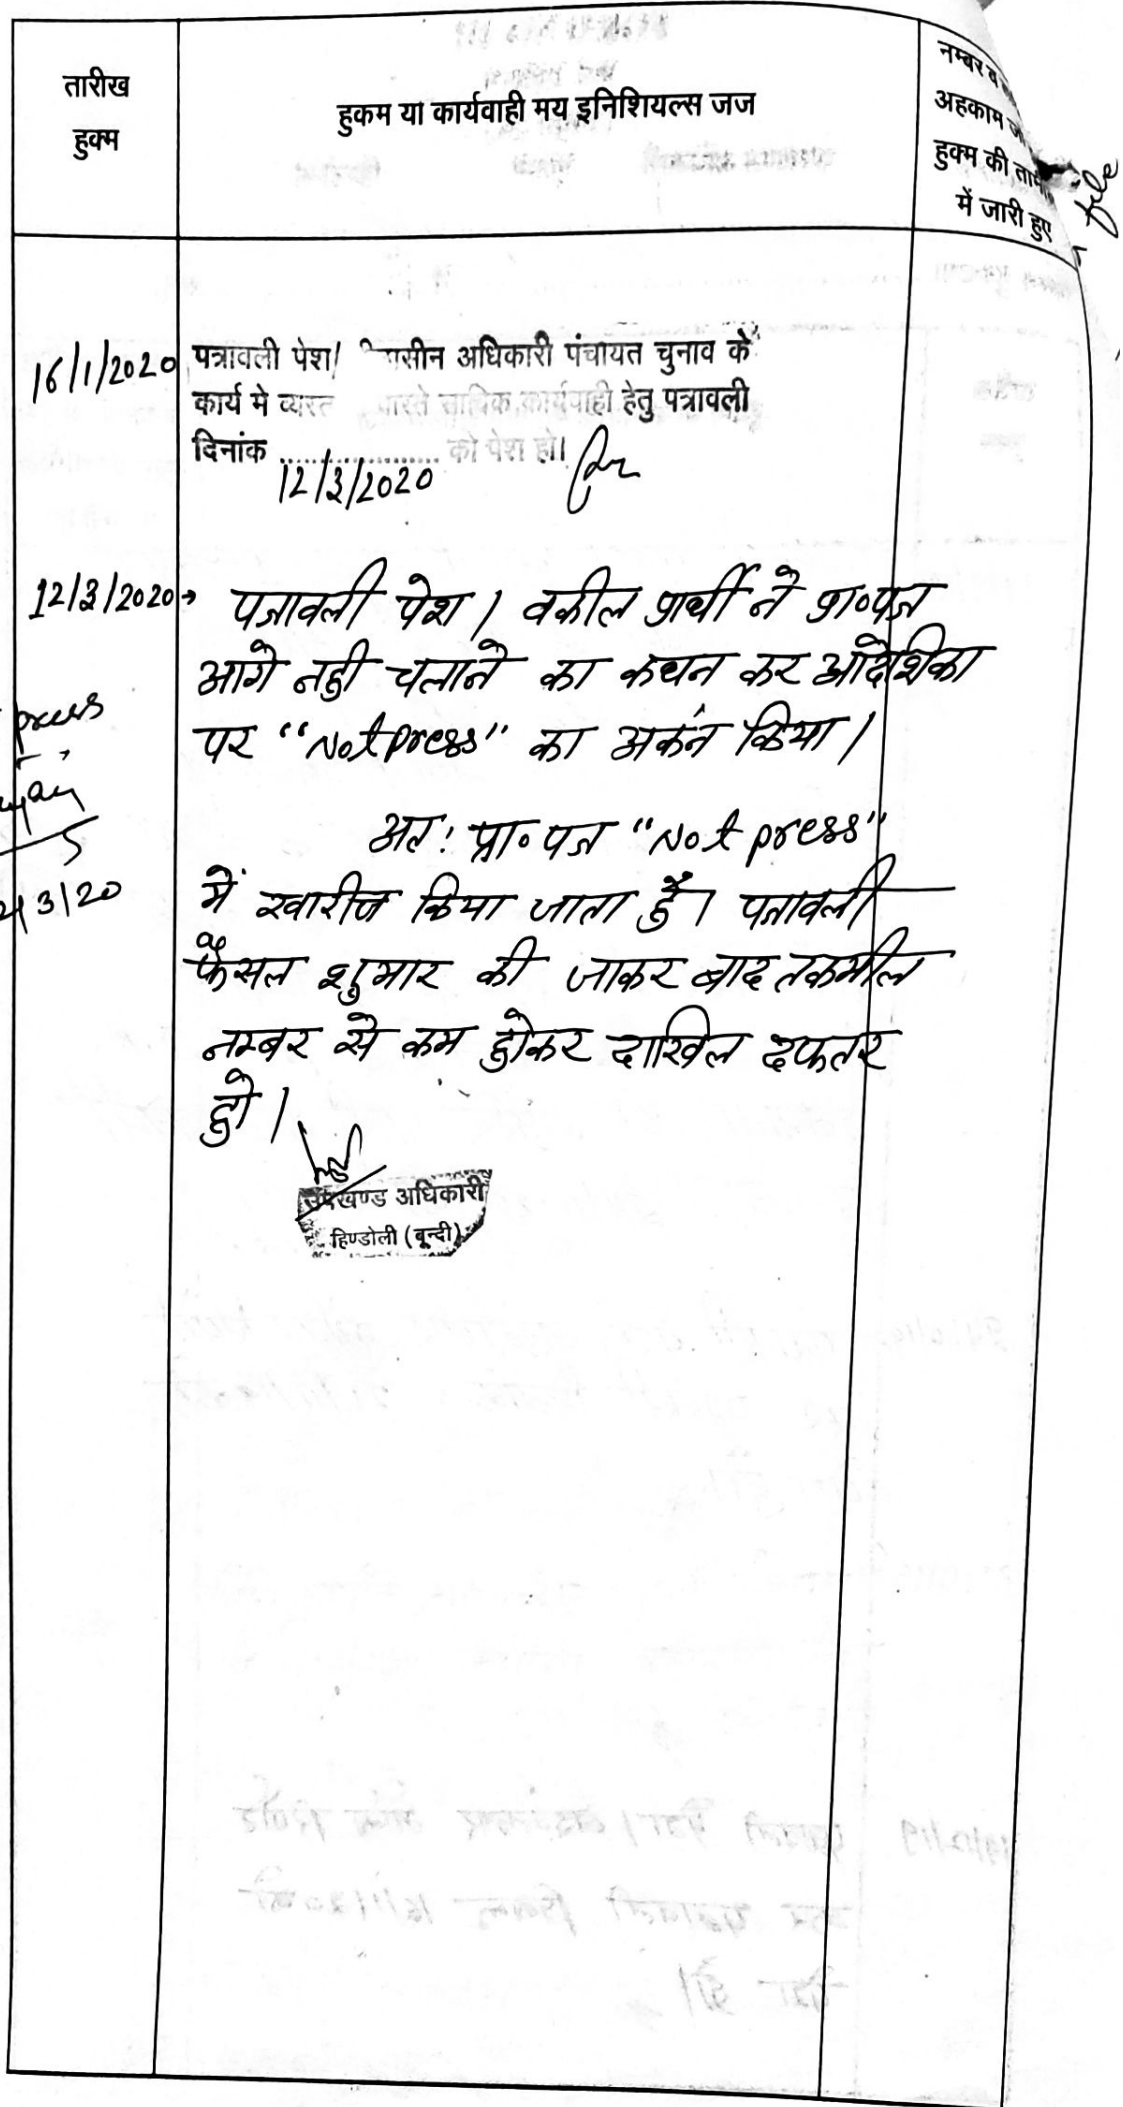 तारीख
हुक्म
हुकम या कार्यवाही मय इनिशियल्स जज
नम्बर व
अहकाम
हुक्म की
में जारी हुए
16/1/2020
पत्रावली पेश। अधिकारी पंचायत चुनाव के
कार्य मे व्यस्त हेतु पत्रावली
दिनांक .................... को पेश हो।
12/3/2020
12/3/2020→ पत्रावली पेश। वकील प्रार्थी ने प्रा०पत्र
आगे नही चलाने का कथन कर आदेशिका
पर "Not press" का अकंन किया।
press
अतः प्रा०पत्र "Not press"
3/20
में खारीज किया जाता है। पत्रावली
फैसल शुमार की जाकर बाद तकमील
नम्बर से कम होकर दाखिल दफतर
हो।
उपखण्ड अधिकारी
हिण्डोली (बून्दी)